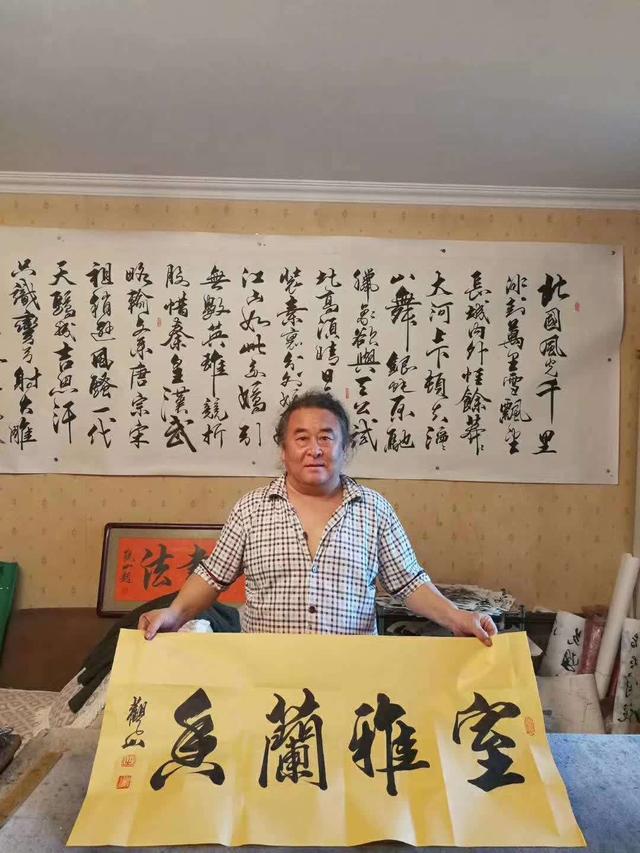 北國風光千里
冰封萬里雪飄望
長城內外惟餘莽
大河上下頓失滔〻
山舞銀蛇原馳
臘象欲與天公試
比高須晴日
裝素裹分外妖
江山如此多嬌引
無數英雄競折
腰惜秦皇漢武
略輸文采唐宗宋
祖稍遜風騷一代
天驕成吉思汗
只識彎弓射大雕
法
觀山題
室雅蘭香
觀山